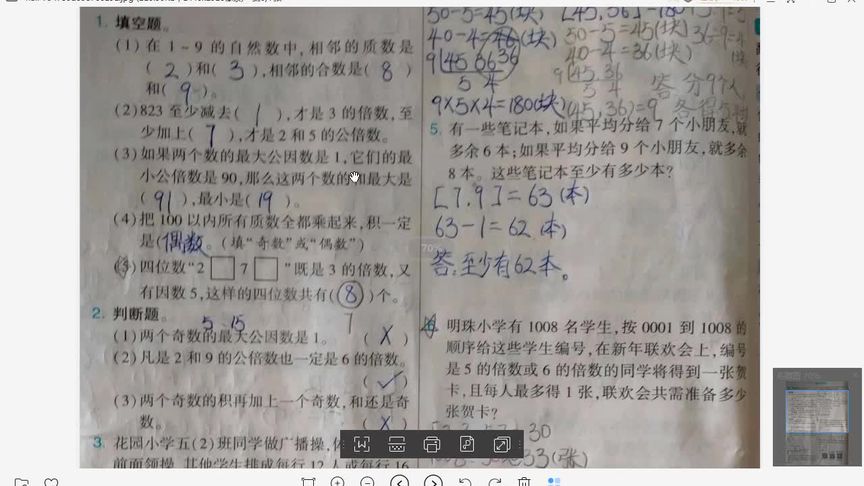 1. 填空题。
(1)在1~9的自然数中,相邻的质数是
( 2 )和( 3 ),相邻的合数是( 8 )
和( 9 )。
(2)823至少减去( 1 ),才是3的倍数,至
少加上( 7 ),才是2和5的公倍数。
(3)如果两个数的最大公因数是1,它们的最
小公倍数是90,那么这两个数的和最大是
( 91 ),最小是( 19 )。
(4)把100以内所有质数全都乘起来,积一定
是(偶数。(填“奇数”或“偶数”)
(5)四位数“2□7□”既是3的倍数,又
有因数5,这样的四位数共有( 8 )个。
2. 判断题。
5 15
(1)两个奇数的最大公因数是1。 ( X )
(2)凡是2和9的公倍数也一定是6的倍数。
( ✓ )
(3)两个奇数的积再加上一个奇数,和还是奇
数。 ( X )
3. 花园小学五(2)班同学做广播操,
前面领操,其他学生排成每行12人或每行16
50-5=45(块)
40-4=
9 45 36 36
5 4
9×5×4=180(块)
50-5=45(块)
40-4=36(块)
9 45.36
5 4
(45,36)=9
答 分9个人
5. 有一些笔记本,如果平均分给7个小朋友,就
多余6本;如果平均分给9个小朋友,就多余
8本。这些笔记本至少有多少本?
[7.9]=63(本)
63-1=62(本)
答:至少有62本。
明珠小学有1008名学生,按0001到1008的
顺序给这些学生编号,在新年联欢会上,编号
是5的倍数或6的倍数的同学将得到一张贺
卡,且每人最多得1张,联欢会共需准备多少
张贺卡?
30
33(张)